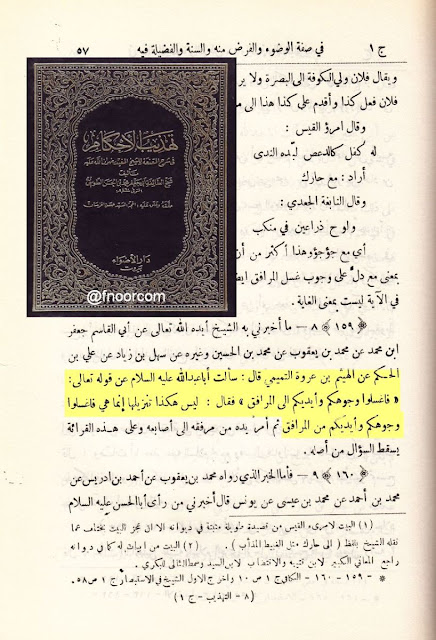 ج ١ في صفة الوضوء والفرض منه والسنة والفضيلة فيه ٥٧
ويقال فلان ولي الكوفة الى البصرة ولا ير
فلان فعل كذا وأقدم على كذا هذا الى م
وقال امرؤ القيس :
له كفل كالدعص لبّده الندى
أراد : مع حارك
وقال النابغة الجعدي :
ولوح ذراعين في منكب
أي مع جؤجؤ وهذا أكثر من أن
بمعنى مع دلّ على وجوب غسل المرافق ايض
في الآية ليست بمعنى الغاية .
تهذيب الأحكام
في شرح المقنعة للشيخ المفيد رضوان الله عليه
تأليف
شيخ الطائفة أبي جعفر محمد بن الحسن الطوسي
دار الأضواء
بيروت
@fnoorcom
﴿ ١٥٩ ﴾ ٨ — ما أخبرني به الشيخ أيده الله تعالى عن أبي القاسم جعفر
ابن محمد عن محمد بن يعقوب عن محمد بن الحسين وغيره عن سهل بن زياد عن علي بن
الحكم عن الهيثم بن عروة التميمي قال : سألت أبا عبد الله عليه السلام عن قوله تعالى :
« فاغسلوا وجوهكم وأيديكم الى المرافق » فقال : ليس هكذا تنزيلها إنما هي فاغسلوا
وجوهكم وأيديكم من المرافق ثم أمرّ يده من مرفقه الى أصابعه وعلى هذه القرائة
يسقط السؤال من أصله .
﴿ ١٦٠ ﴾ ٩ — فأما الخبر الذي رواه محمد بن يعقوب عن أحمد بن ادريس عن
محمد بن أحمد عن محمد بن عيسى عن يونس قال أخبرني من رأى أبا الحسن عليه السلام
(١) البيت لامرىء القيس من قصيدة طويلة مثبتة في ديوانه الا ان عجز البيت يختلف عما
نقله الشيخ بلفظ ( الى حارك مثل الغبيط المذأب ) . (٢) البيت من ابيات له كما في ديوانه
راجع المعاني الكبير لابن قتيبة والاقتضاب لابن السيد وسمط اللئالي للبكري .
* - ١٥٩ - ١٦٠ - الكافي ج ١ ص ١٠ واخرج الاول الشيخ في الاستبصار ج ١ ص ٥٨.
( ٨ - التهذيب - ج ١ )